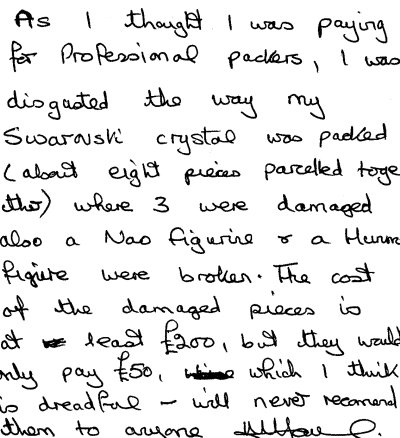 As I thought I was paying
for Professional packers, I was
disgusted the way my
Swarovski crystal was packed
(about eight pieces parcelled toge
ther) where 3 were damaged
also a Nao figurine & a Humm
figure were broken. The cost
of the damaged pieces is
at least £200, but they would
only pay £50, which I think
is dreadful - will never recomend
them to anyone